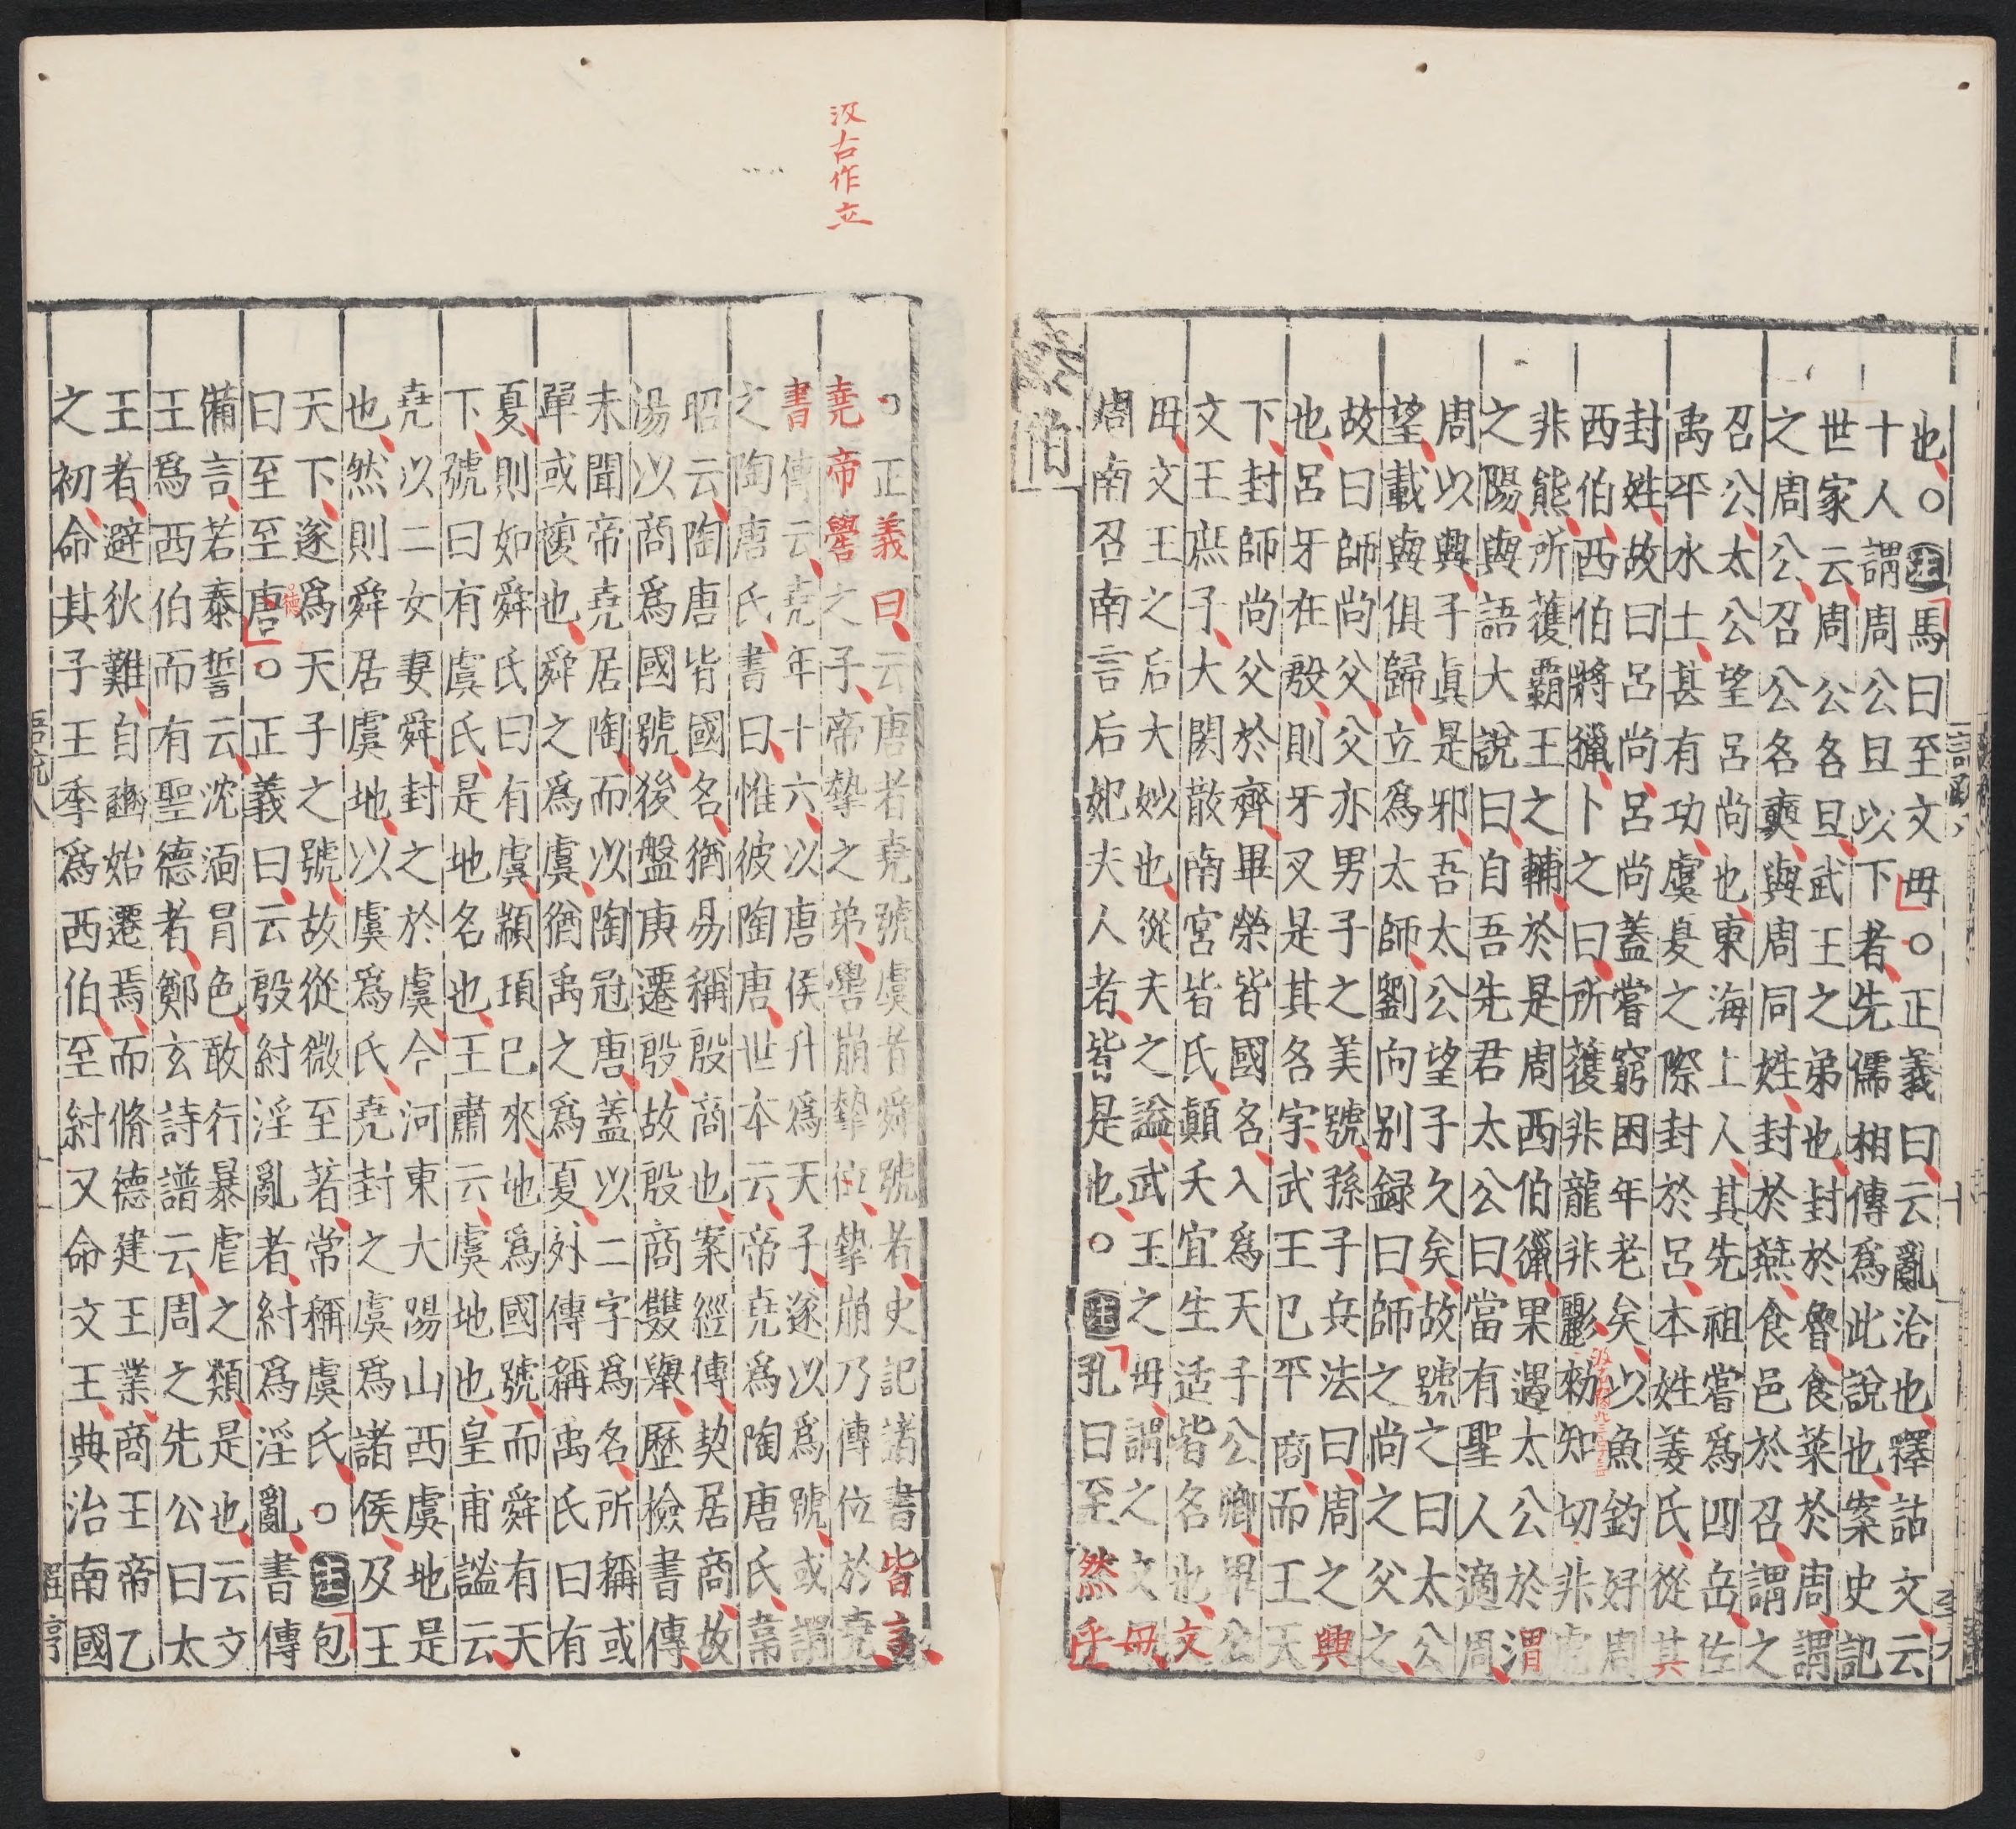 也○注馬曰至文毋○正義曰云亂治也釋詁文云
十人謂周公旦以下者先儒相傳爲此說也案史記
世家云周公名旦武王之弟也封於魯食菜於周謂
之周公召公名奭與周同姓封於燕食邑於召謂之
召公太公望呂尚也東海上人其先祖嘗爲四岳佐
禹平水土甚有功虞夏之際封於呂本姓姜氏從其
封姓故曰呂尚呂尚蓋嘗窮困年老矣以魚釣好周
西伯西伯將獵卜之曰所獲非龍非彲勑知切非虎
非熊所獲覇王之輔於是周西伯獵果遇太公於渭
之陽與語大說曰自吾先君太公曰當有聖人適周
周以興子眞是邪吾太公望子久矣故號之曰太公
望載與俱歸立爲太師劉向別録曰師之尚之父之
故曰師尚父父亦男子之美號孫子兵法曰周之興
也呂牙在殷則牙又是其名字武王已平商而王天
下封師尚父於齊畢榮皆國名入爲天子公卿畢公
文王庶子大閎散南宮皆氏顚夭宜生适皆名也文
毋文王之后大姒也從夫之謚武王之毋謂之文毋
周南召南言后妃夫人者皆是也○注孔曰至然乎
汲古作立
○正義曰云唐者堯號虞者舜號者史記諸書皆言
堯帝嚳之子帝摯之弟嚳崩摯位摯崩乃傳位於堯
書傳云堯年十六以唐侯升爲天子遂以爲號或謂
之陶唐氏書曰惟彼陶唐世本云帝堯爲陶唐氏韋
昭云陶唐皆國名猶易稱殷商也案經傳契居商故
湯以商爲國號後盤庚遷殷故殷商雙舉歷檢書傳
未聞帝堯居陶而以陶冠唐蓋以二字爲名所稱或
單或複也舜之爲虞猶禹之爲夏外傳稱禹氏曰有
夏則如舜氏曰有虞顓頊已來地爲國號而舜有天
下號曰有虞氏是地名也王肅云虞地也皇甫謐云
堯以二女妻舜封之於虞今河東大陽山西虞地是
也然則舜居虞地以虞爲氏堯封之虞爲諸侯及王
天下遂爲天子之號故從微至著常稱虞氏○注包
曰至至唐德○正義曰云殷紂淫亂者紂爲淫亂書傳
備言若泰誓云沈湎冒色敢行暴虐之類是也云文
王爲西伯而有聖德者鄭玄詩譜云周之先公曰太
王者避狄難自豳始遷焉而脩德建王業商王帝乙
之初命其子王季爲西伯至紂又命文王典治南國